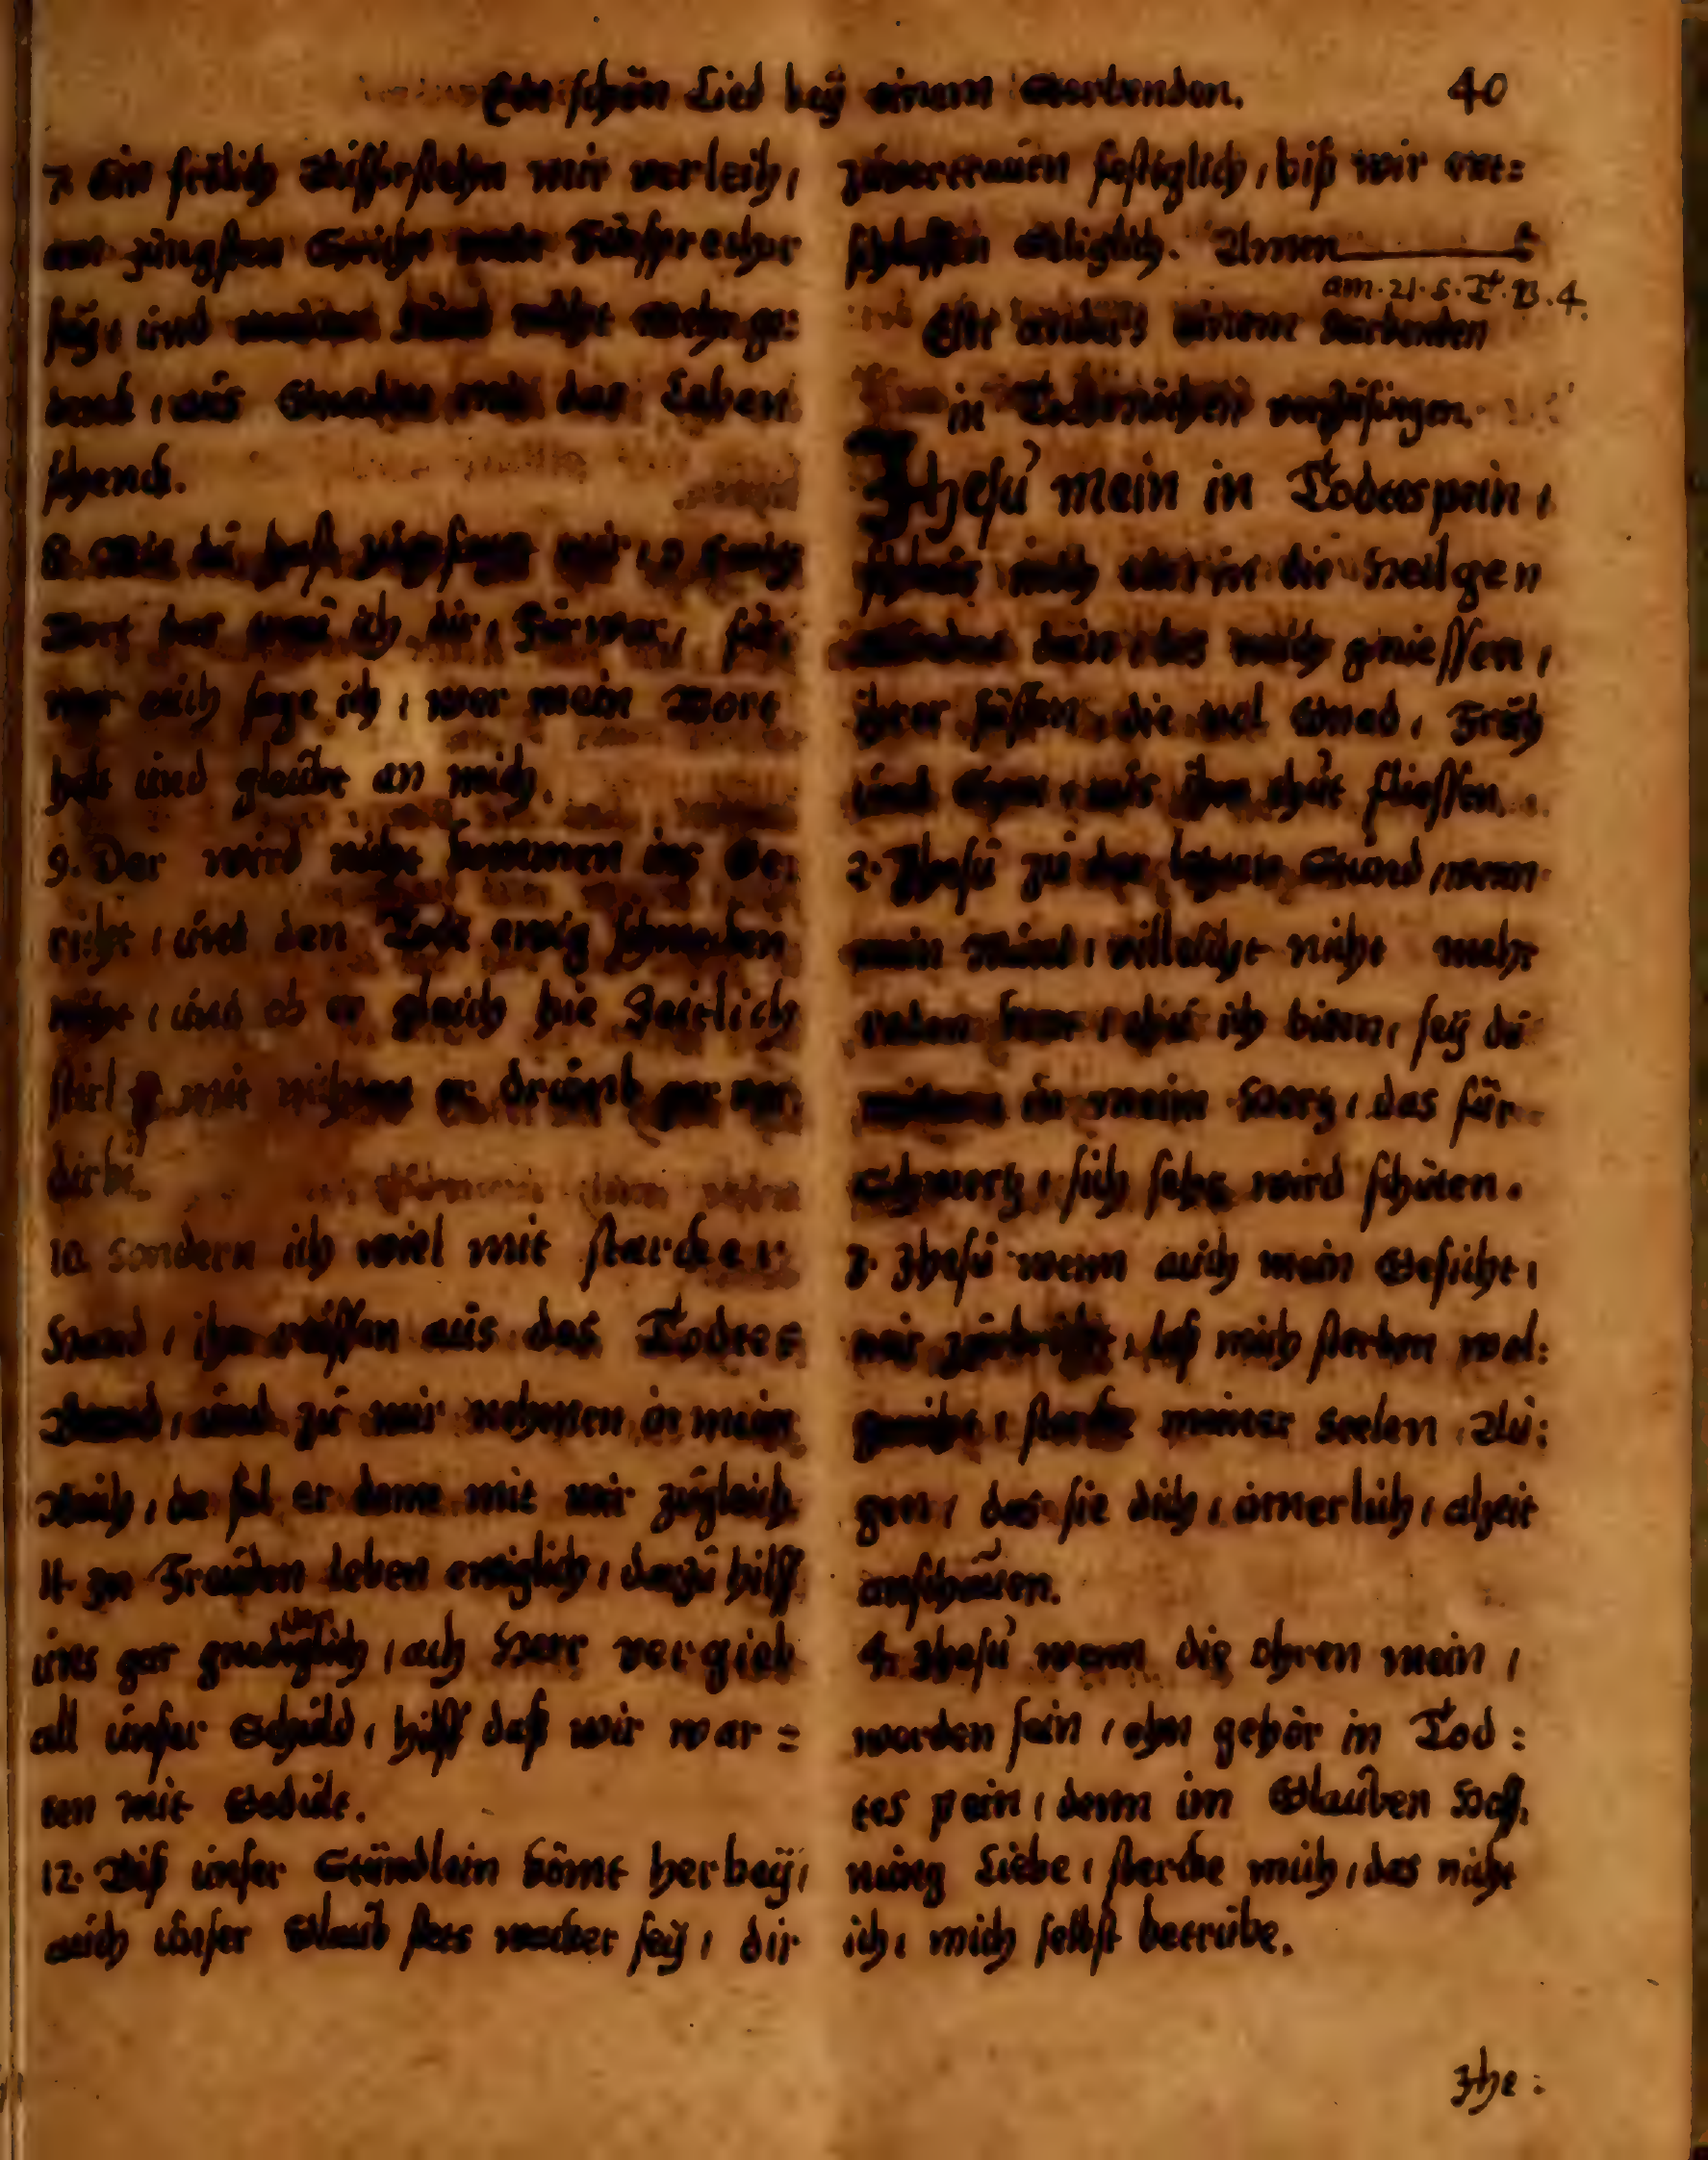 Ein schön Lied beÿ einem Sterbenden. 40
7. Ein frölich Aufferstehn mir verleih,
am jüngsten Gericht mein Fürsprecher
seÿ, und meiner Sünd nicht mehr ge:
denck, aus Gnaden mir das Leben
schenck.
8. Wie du hast zugesagt mir, in deinem
Wort das trau ich dir, Fürwar, für:
war euch sage ich, wer mein Wort
helt und gleubt an mich.
9. Der wird nicht kommen ins Ge:
richt, und den Todt ewig schmecken
nicht, und ob er gleich hie Zeitlich
stirbt mit nichten er drumb gar ver:
dirbt.
10. Sondern ich wiel mit starcker
Hand, ihn reissen aus des Todtes
Band, und zu mir nehmen in mein
Reich, da sol er denn mit mir zugleich
11. In Freuden leben ewiglich, darzu hilff
uns gar gnediglich, ach Herr vergieb
all unser Schuld, hilff daß wir war=
ten mit Gedult.
12. Biß unser Stündlein kömt herbeÿ,
auch unser Glaub stets wacker seÿ, dir
zuvertrauen festiglich, biß wir ent:
schlaffen seliglich. Amen
am. 21. S. T. B. 4.
Ein anders einem Sterbenden
in Todesnöthen vorzusingen.
Jhesu mein in Todtespein,
schleus mich ein in die Heilgen
Wunden dein, las mich geniessen,
ihrer süssen, die vol Gnad, Früh
und Spat, aus ihn thut fliessen.
2. Jhesu zu der letzten Stund, wenn
mein Mund, villeicht nicht mehr
reden kan, thu ich bitten, seÿ du
mitten in meim Hertz, das für
Schmertz, sich sehr wird schüten.
3. Jhesu wenn auch mein Gesicht,
mir zubricht, laß mich sterben wol:
gericht, stercke meiner Seelen Au:
gen, das sie dich, innerlich, alzeit
anschauen.
4. Jhesu wenn die ohren mein,
worden sein, ohn gehör in Tod:
tes pein, denn im Glauben Hoff:
nung Liebe, stercke mich, das nicht
ich, mich selbst betrübe.
Jhe: